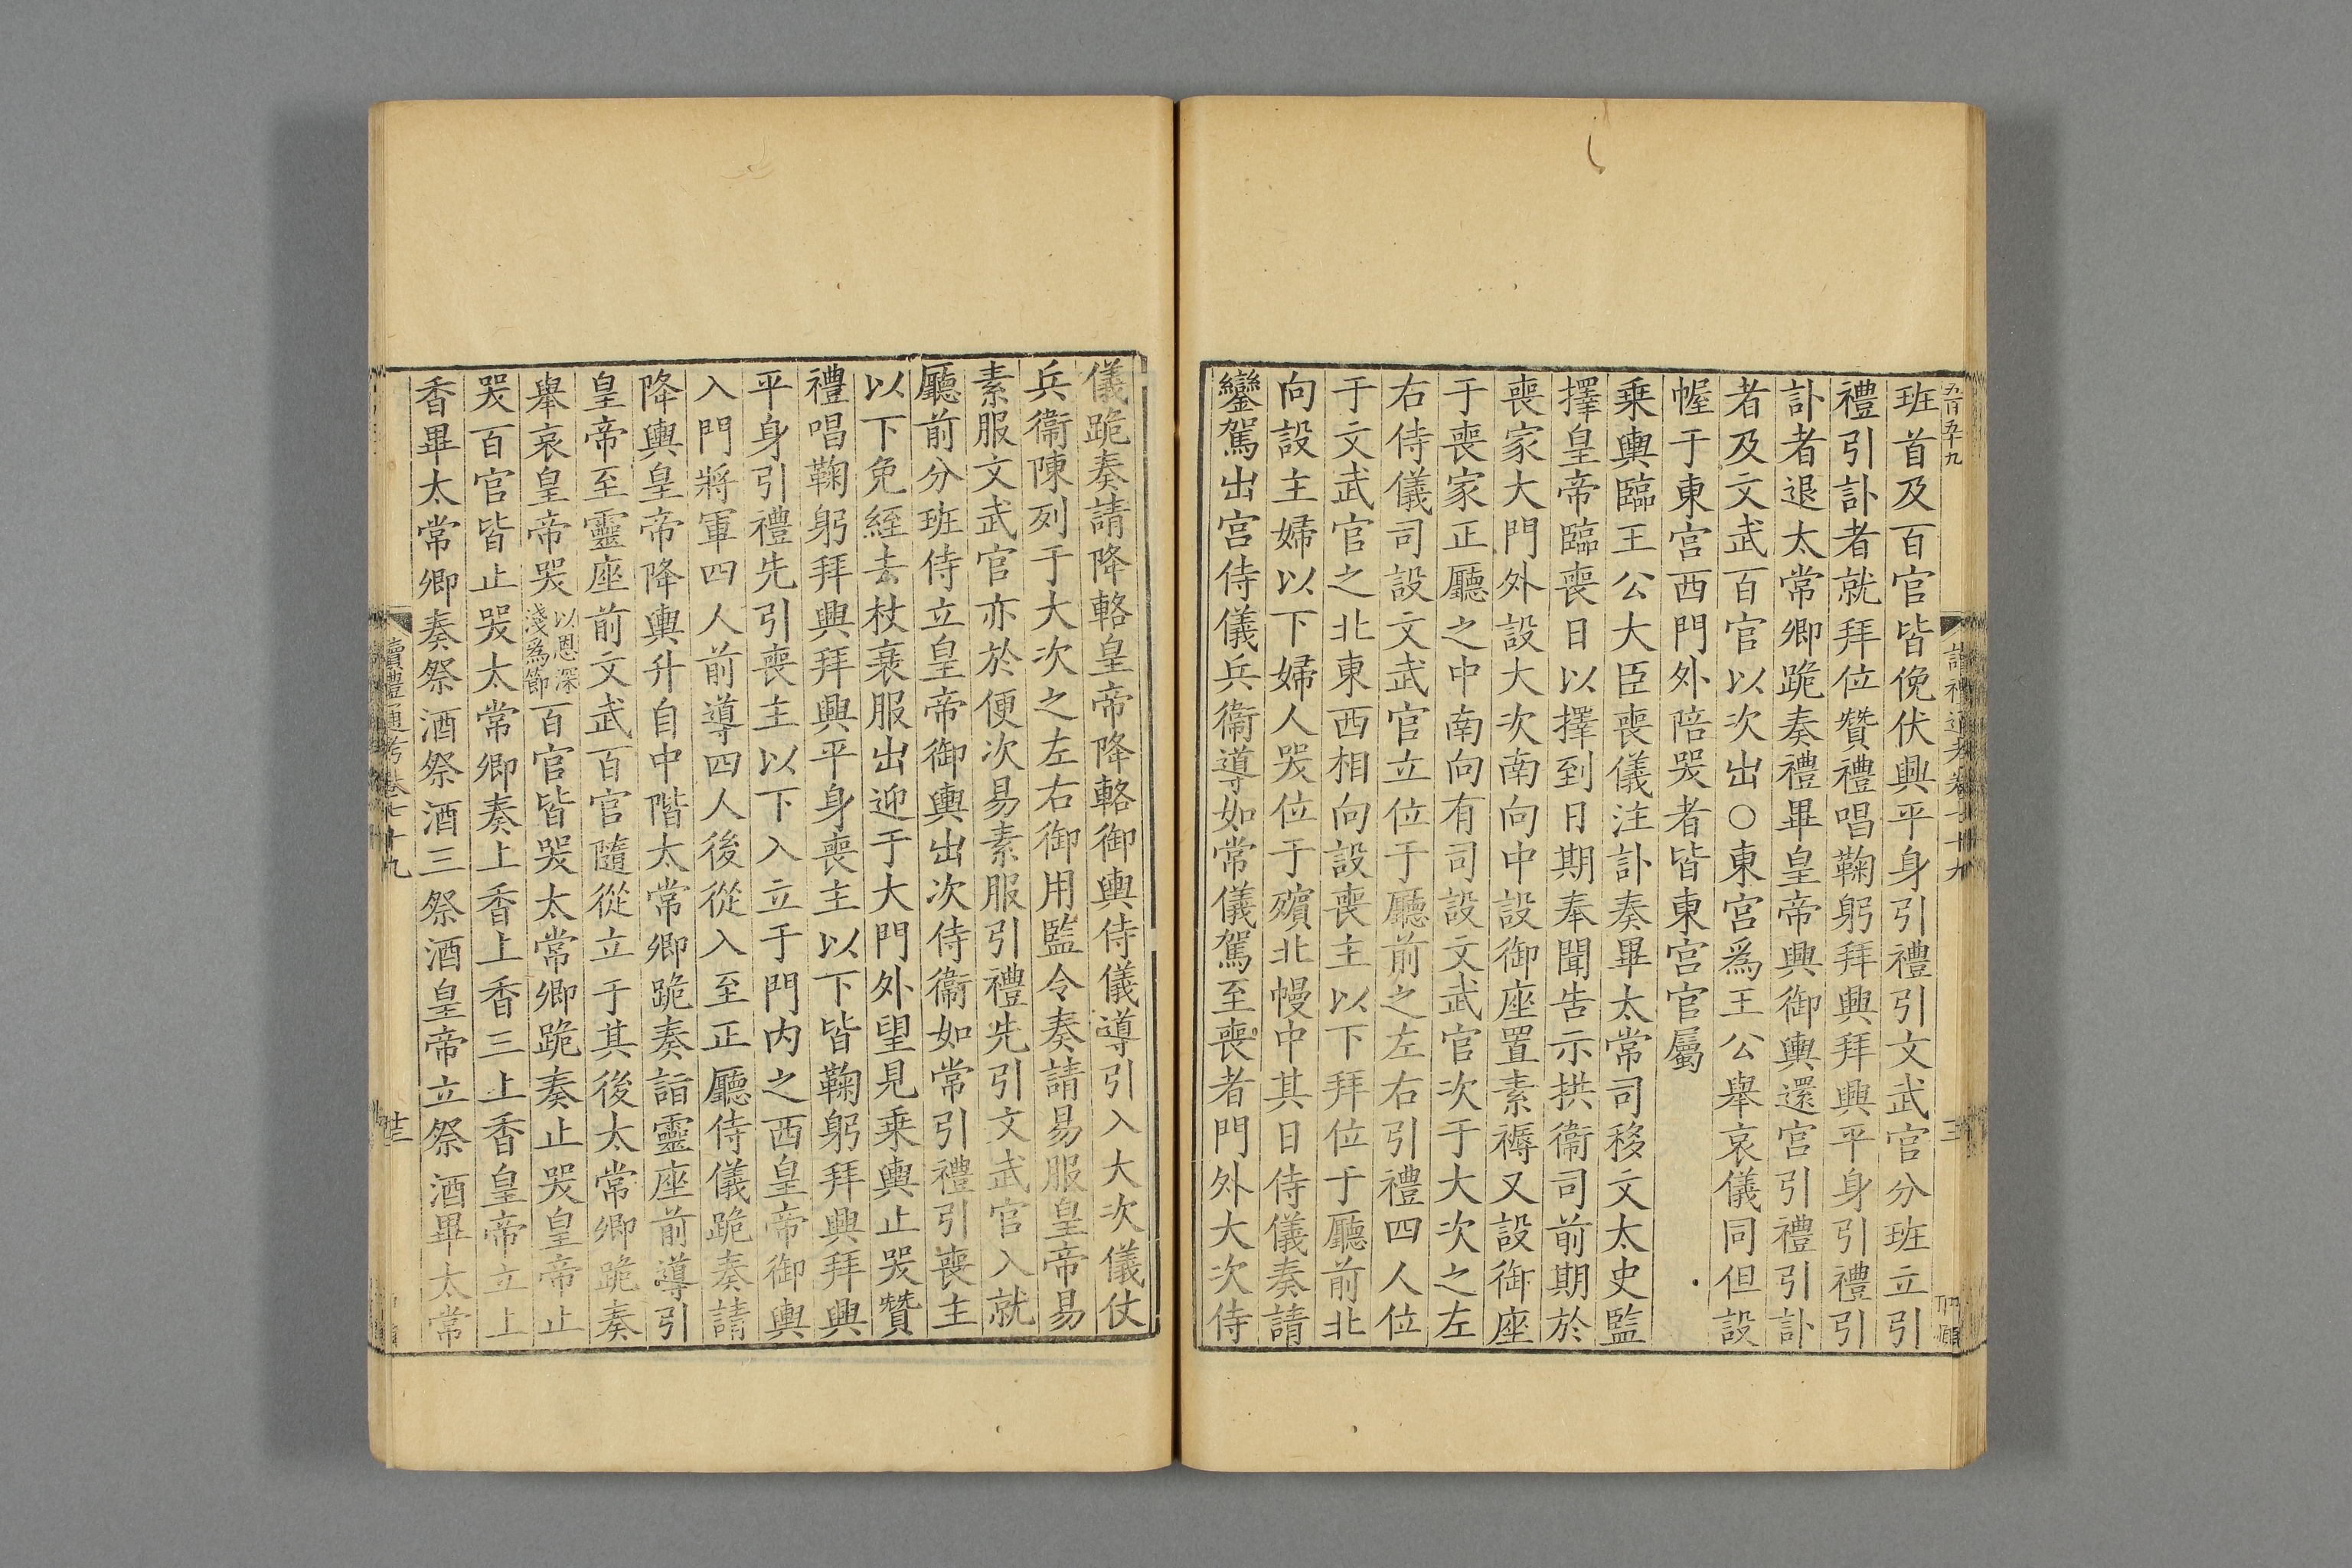 班首及百官皆俛伏興平身引禮引文武官分班立引
禮引訃者就拜位贊禮唱鞠躬拜興拜興平身引禮引
訃者退太常卿跪奏禮畢皇帝興御輿還宮引禮引訃
者及文武百官以次出○東宮爲王公舉哀儀同但設
幄于東宮西門外陪哭者皆東宮官屬
乗輿臨王公大臣喪儀注訃奏畢太常司移文太史監
擇皇帝臨喪日以擇到日期奉聞告示拱衞司前期於
喪家大門外設大次南向中設御座置素褥又設御座
于喪家正廳之中南向有司設文武官次于大次之左
右侍儀司設文武官立位于廳前之左右引禮四人位
于文武官之北東西相向設喪主以下拜位于廳前北
向設主婦以下婦人哭位于殯北幔中其日侍儀奏請
鑾駕出宮侍儀兵衞導如常儀駕至喪者門外大次侍
儀跪奏請降輅皇帝降輅御輿侍儀導引入大次儀仗
兵衞陳列于大次之左右御用監令奏請易服皇帝易
素服文武官亦於便次易素服引禮先引文武官入就
廳前分班侍立皇帝御輿出次侍衞如常引禮引喪主
以下免絰去杖衰服出迎于大門外望見乗輿止哭贊
禮唱鞠躬拜興拜興平身喪主以下皆鞠躬拜興拜興
平身引禮先引喪主以下入立于門内之西皇帝御輿
入門將軍四人前導四人後從入至正廳侍儀跪奏請
降輿皇帝降輿升自中階太常卿跪奏詣靈座前導引
皇帝至靈座前文武百官隨從立于其後太常卿跪奏
舉哀皇帝哭以恩深淺爲節百官皆哭太常卿跪奏止哭皇帝止
哭百官皆止哭太常卿奏上香上香三上香皇帝立上
香畢太常卿奏祭酒祭酒三祭酒皇帝立祭酒畢太常
讀禮通考卷七十九